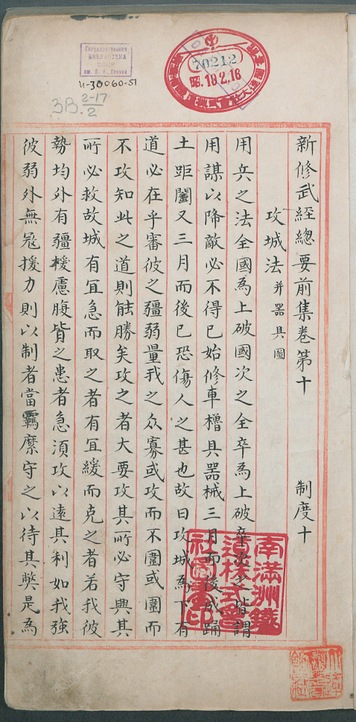 Государственная
БИБЛИОТЕКА
СССР
им. В. И. Ленина
И-30060-51
3В 2-17
2
70212
新修武經總要前集卷第十 制度十
攻城法 并器具圖
用兵之法全國為上破國次之全卒為上破卒次之皆謂
用謀以降敵必不得已始修車櫓具器械三月而後成踊
土距闉又三月而後已恐傷人之甚也故曰攻城為下有
道必在乎審彼之彊弱量我之众寡或攻而不圍或圍而
不攻知此之道則能勝矣攻之者大要攻其所必守與其
所必救故城有宜急而取之者有宜緩而克之者若我彼
勢均外有彊援慮腹背之患者急湏攻以速其利如我強
彼弱外無寇援力則以制者當羈縻守之以待其獘是為
南滿洲鐵
道株式會
社圖書印